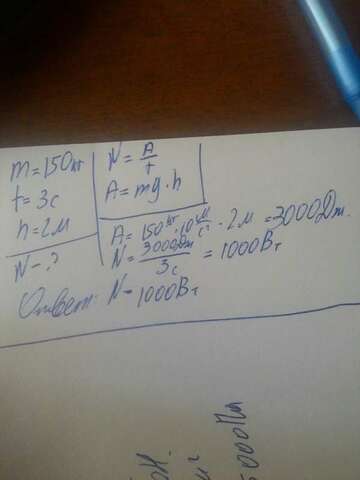 m=150кг
t=3с
h=2м
N-?
N=A/t
A=mg·h
A=150кг·10м/с²·2м=3000Дж.
N=3000Дж/3с=1000Вт
Ответ: N-1000Вт
5000Па